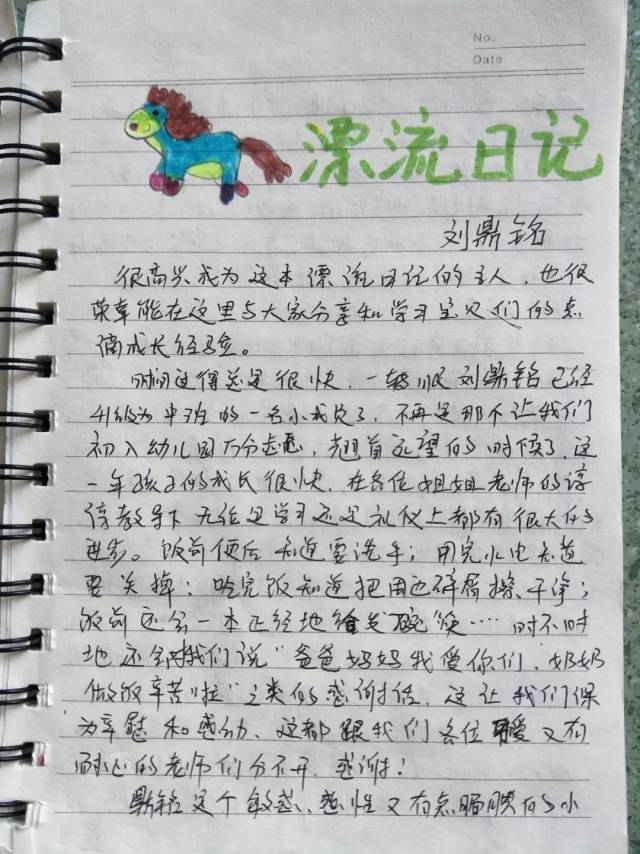 No.
Date
漂流日记
刘鼎铭
很高兴成为这本漂流日记的主人，也很
荣幸能在这里与大家分享和学习宝贝们的点
滴成长经验。
时间过得总是很快，一转眼刘鼎铭已经
升级为中班的一名小成员了，不再是那个让我们
初入幼儿园万分焦虑，翘首远望的时候了，这
一年孩子的成长很快，在各位姐姐老师的谆
谆教导下无论是学习还是礼仪上都有很大的
进步。饭前便后知道要洗手；用完水电知道
要关掉；吃完饭知道把周边碎屑擦干净；
饭前还会一本正经地给发碗筷……时不时
地还会对我们说"爸爸妈妈我爱你们，奶奶
做饭辛苦啦"之类的感谢话，这让我们倍
为幸慰和感动、这都跟我们各位可爱又有
耐心的老师们分不开，感谢！
鼎铭是个敏感、感性又有点腼腆的小